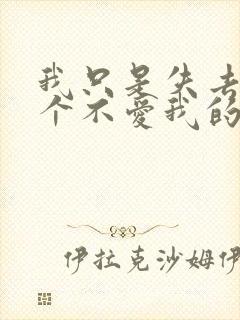 我只是失去
个不爱我的
伊拉克沙姆伊